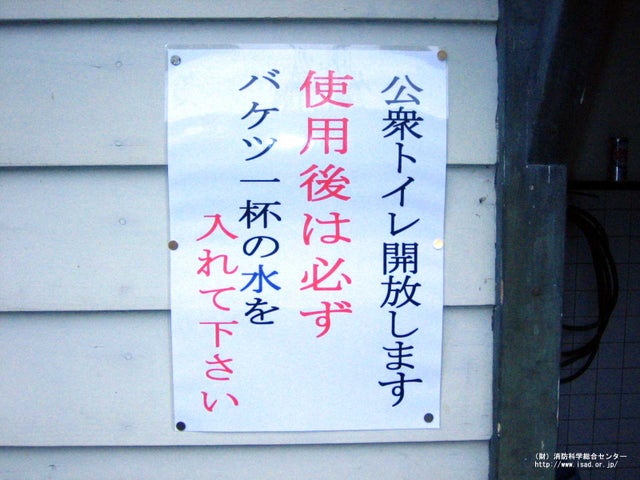 公衆トイレ開放します
使用後は必ず
バケツ一杯の水を
入れて下さい
（財）消防科学総合センター
http://www.isad.or.jp/